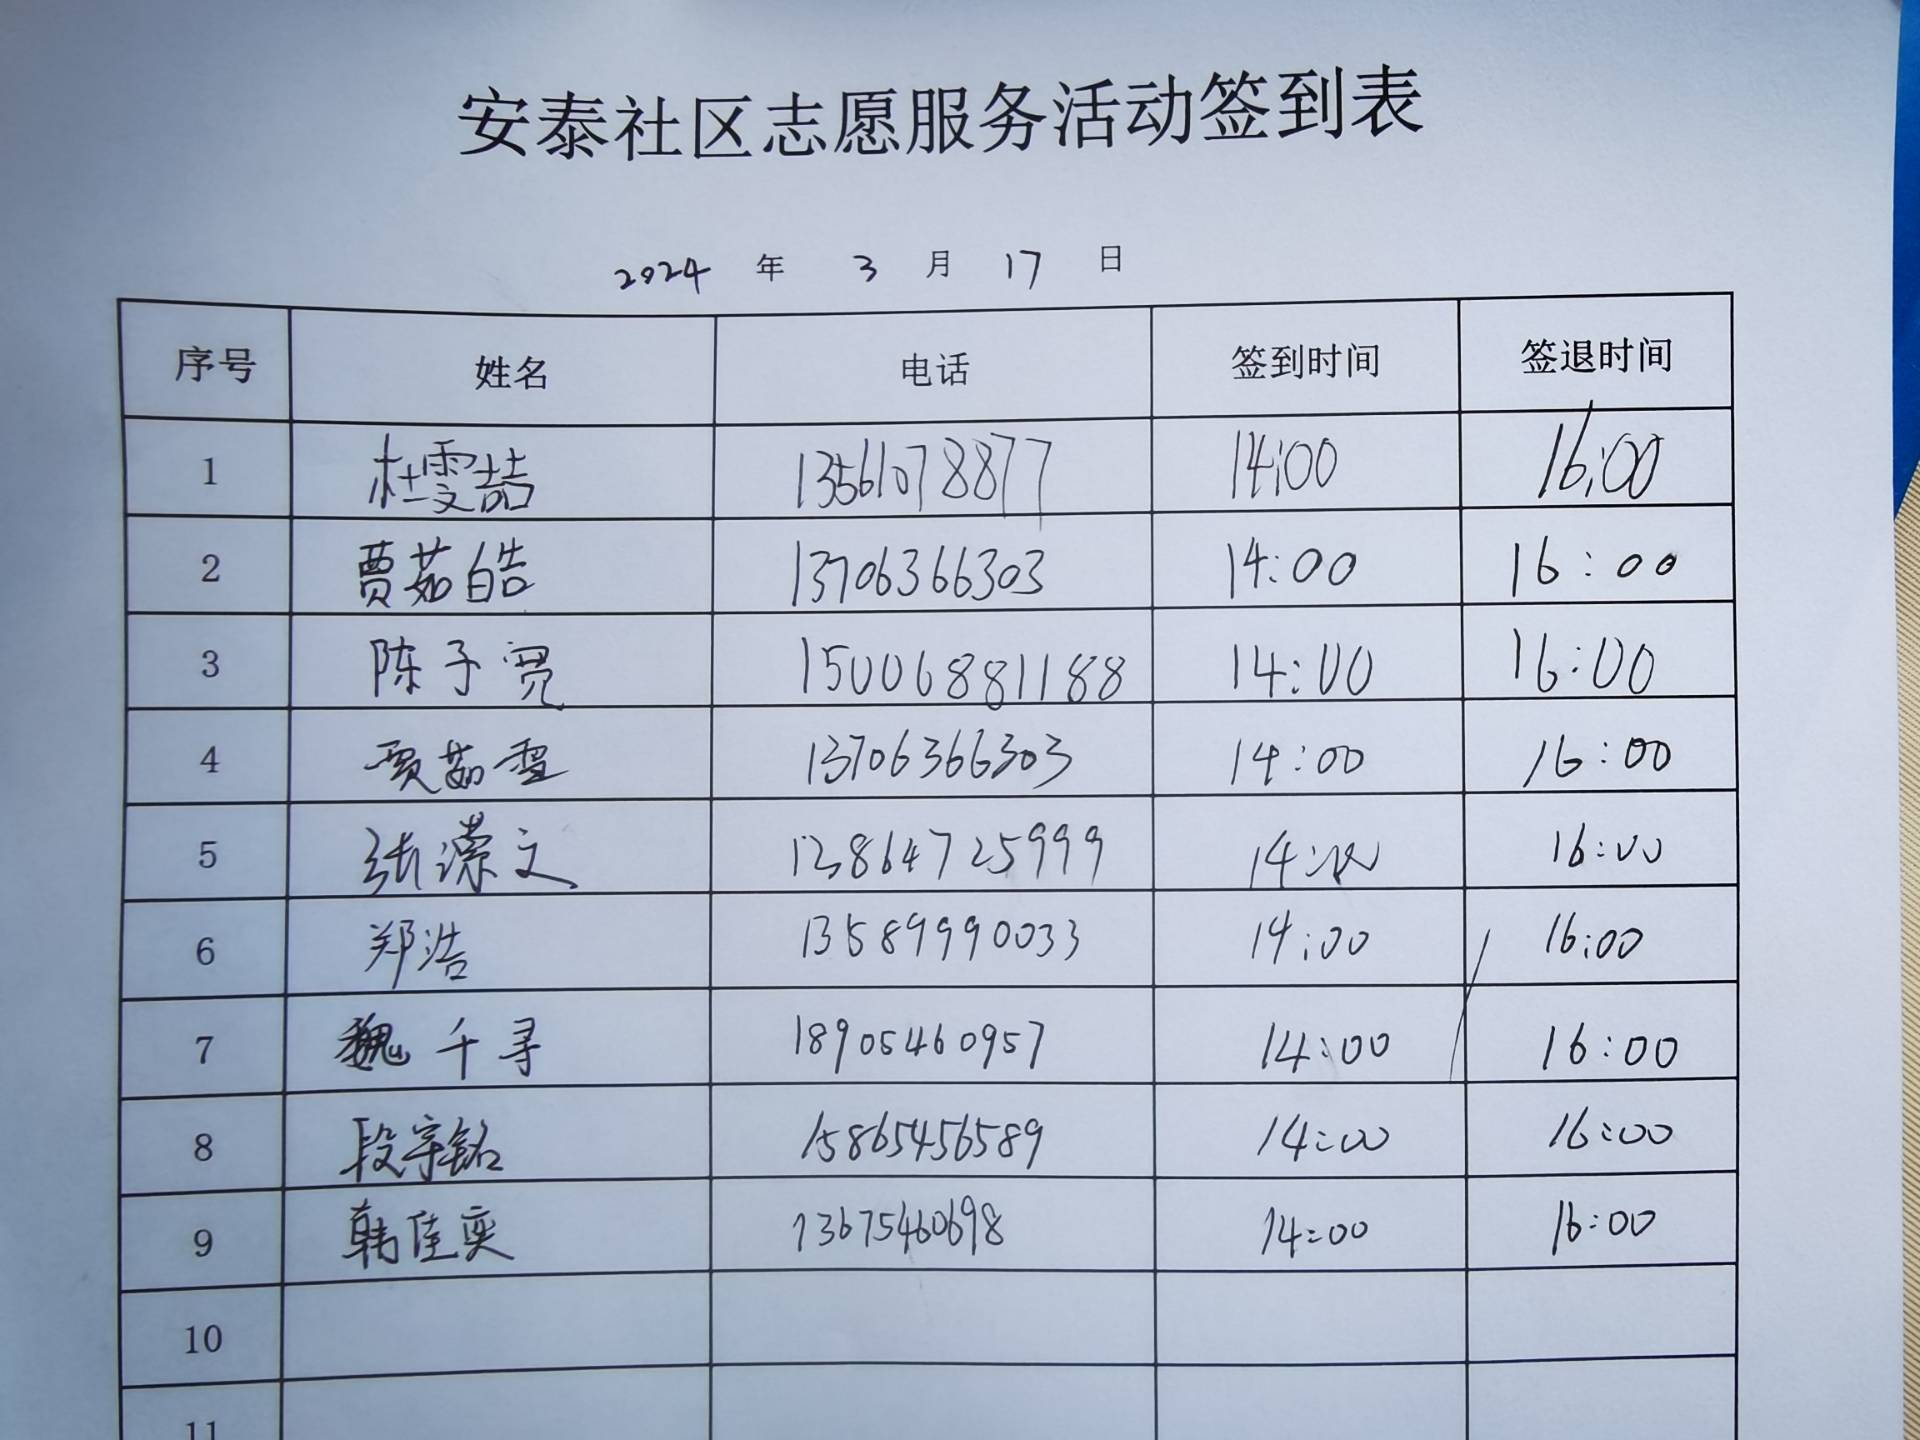 安泰社区志愿服务活动签到表
2024 年 3 月 17 日
序号 姓名 电话 签到时间 签退时间
1 杜雯喆 13561078877 14:00 16:00
2 贾茹皓 13706366303 14:00 16:00
3 陈子宽 15006881188 14:00 16:00
4 贾茹雪 13706366303 14:00 16:00
5 张潆文 13864725999 14:00 16:00
6 郑浩 13589990033 14:00 16:00
7 魏千寻 18905460957 14:00 16:00
8 段宇铭 15865456589 14:00 16:00
9 韩佳奕 13675460698 14:00 16:00
10
11